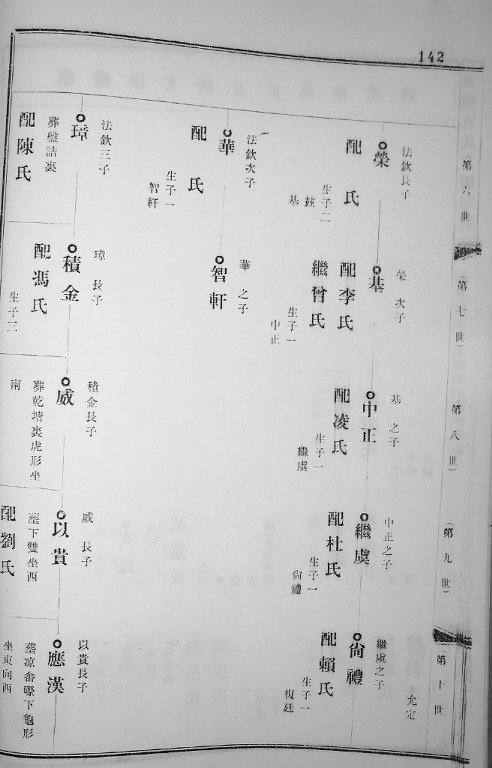 142
第六世
第七世
第八世
(第九世)
第十世
法欽長子
榮
配 氏
生子二
基
榮次子
基
配李氏
繼曾氏
生子一
中正
基之子
中正
配凌氏
生子一
繼虞
中正之子
繼虞
配杜氏
生子一
尙禮
允定
繼虞之子
尙禮
配賴氏
生子一
復廷
法欽次子
華
配 氏
生子一
智軒
華之子
智軒
法欽三子
璋
葬盤詰裏
配陳氏
璋長子
積金
配馮氏
生子三
積金長子
威
葬乾塘裏虎形坐
南
威長子
以貴
塟下雙坐西
配劉氏
以貴長子
應漢
塟凉畓磜下龜形
坐東向西